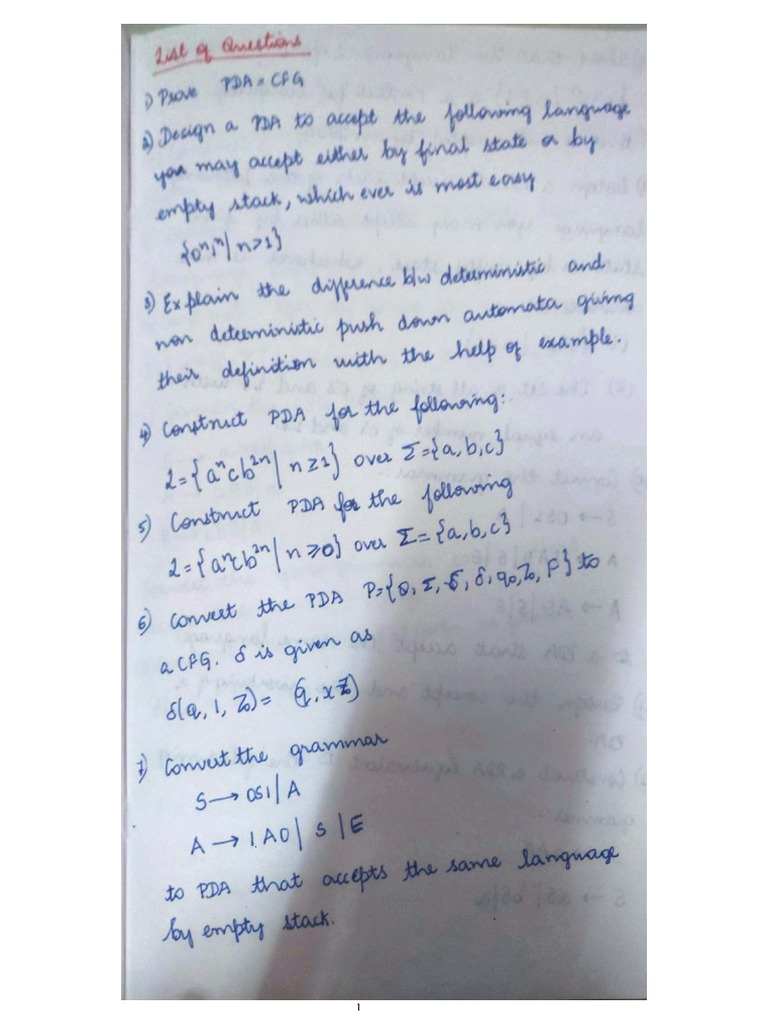 List of Questions
1) Prove PDA = CFG
2) Design a PDA to accept the following language
you may accept either by final state or by
empty stack, which ever is most easy
{0ⁿ1ⁿ | n>1}
3) Explain the difference b/w deterministic and
non deterministic push down automata giving
their definition with the help of example.
4) Construct PDA for the following:
L={aⁿcb²ⁿ | n≥1} over Σ={a,b,c}
5) Construct PDA for the following
L={aⁿcb²ⁿ | n≥0} over Σ={a,b,c}
6) Convert the PDA P={Q, Σ, δ, q₀, Z₀, F} to
a CFG. δ is given as
δ(Q, 1, Z₀) = (q, xZ₀)
7) Convert the grammar
S → 0S1 | A
A → 1A0 | S | E
to PDA that accepts the same language
by empty stack.
1